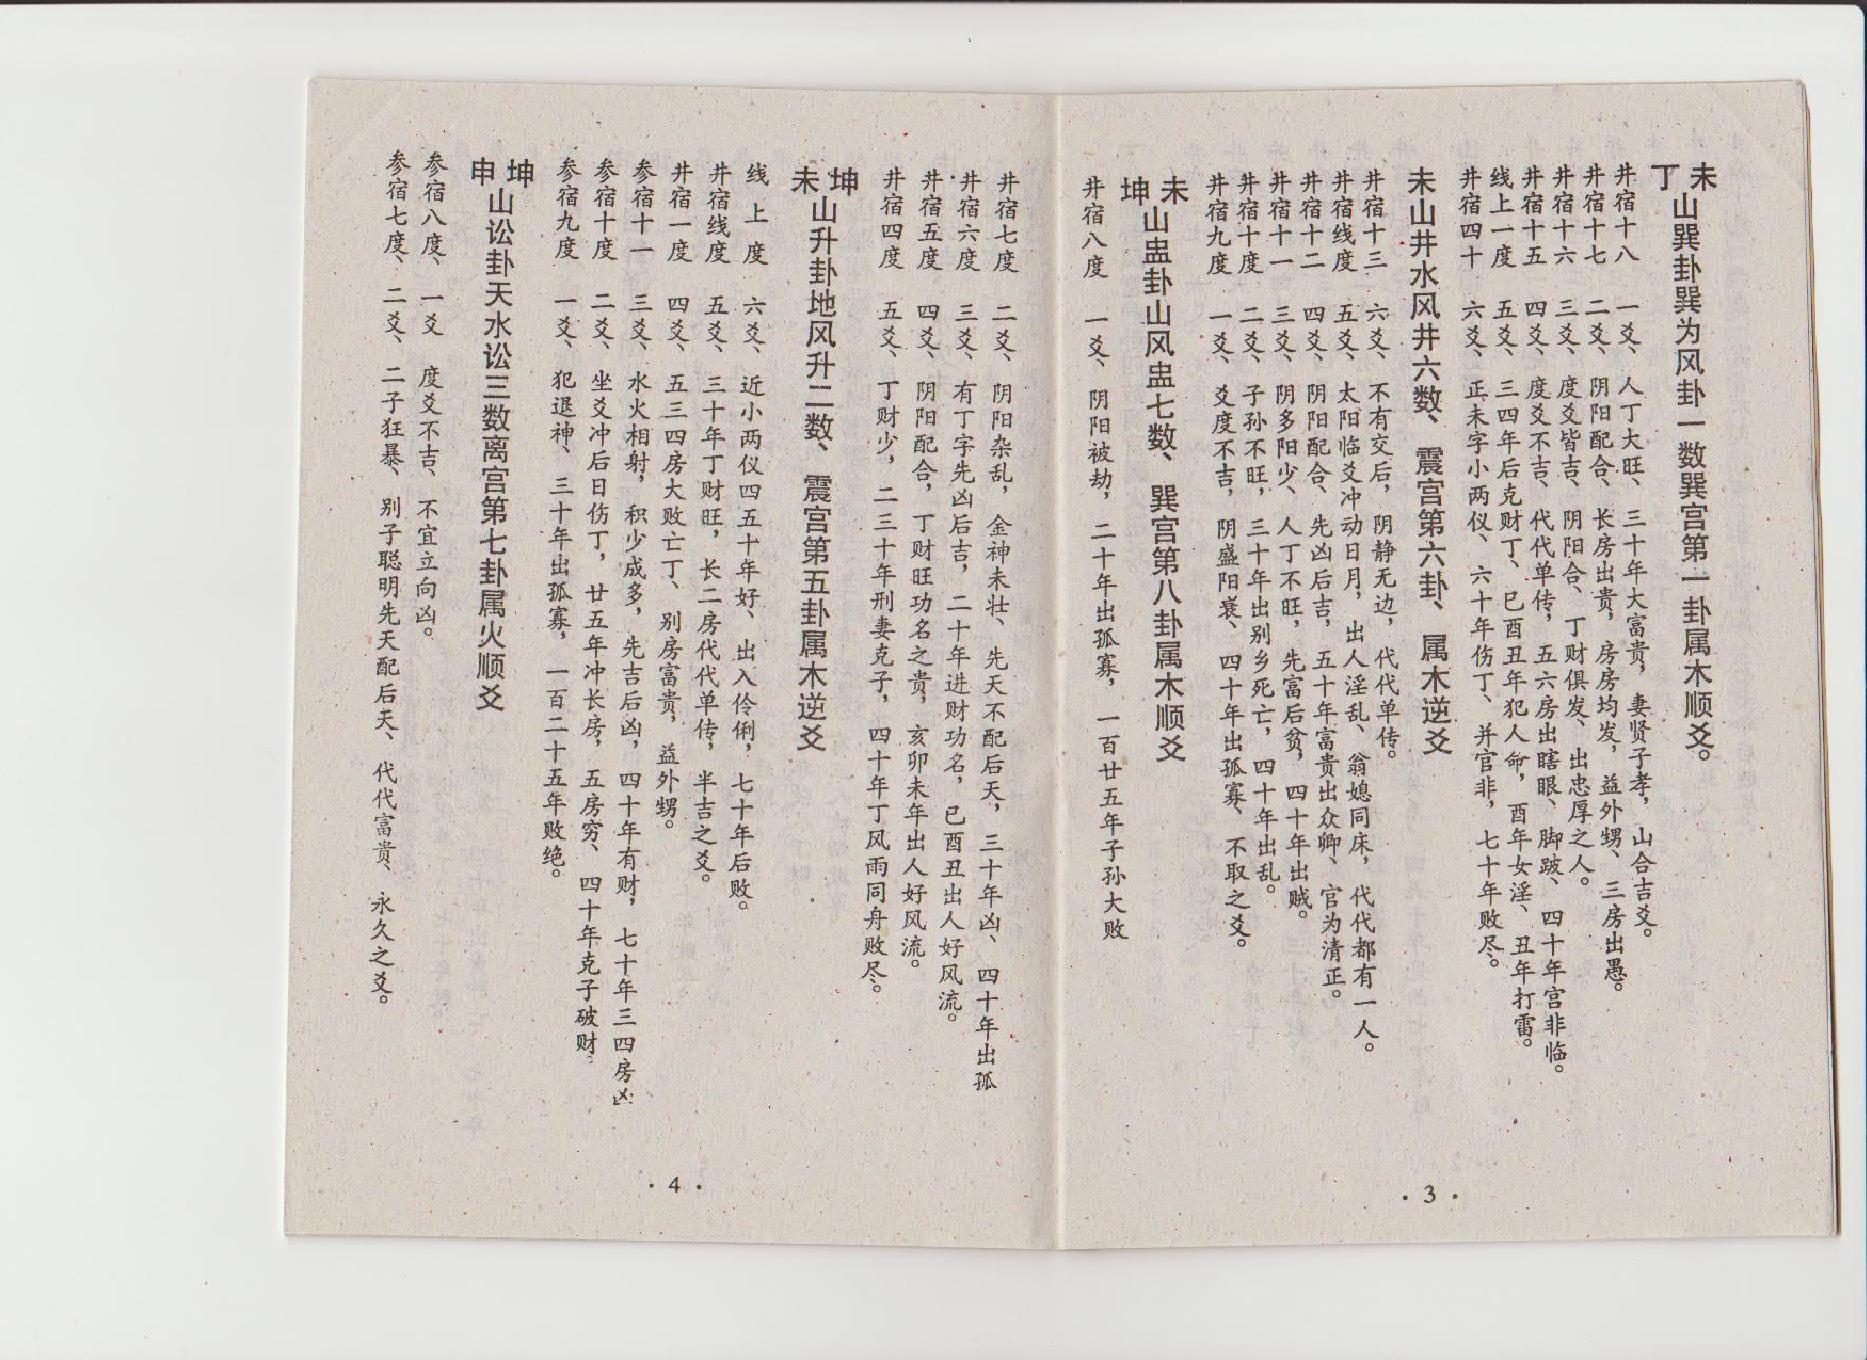 未丁山巽卦巽为风卦一数巽宫第一卦属木顺爻。
井宿十八 一爻、人丁大旺、三十年大富贵，妻贤子孝，山合吉爻。
井宿十七 二爻、阴阳配合、长房出贵，房房均发，益外甥、三房出愚。
井宿十六 三爻、度爻皆吉、阴阳合、丁财俱发、出忠厚之人。
井宿十五 四爻、度爻不吉、代代单传，五六房出瞎眼、脚跛、四十年宫非临。
线上一度 五爻、三四年后克财丁、巳酉丑年犯人命，酉年女淫、丑年打雷。
井宿四十 六爻、正未字小两仪、六十年伤丁、并官非，七十年败尽。
未山井水风井六数、震宫第六卦、属木逆爻
井宿十三 六爻、不有交后，阴静无边，代代单传。
井宿线度 五爻、太阳临爻冲动日月，出人淫乱、翁媳同床，代代都有一人。
井宿十二 四爻、阴阳配合、先凶后吉，五十年富贵出众卿、官为清正。
井宿十一 三爻、阴多阳少、人丁不旺，先富后贫，四十年出贼。
井宿十度 二爻、子孙不旺，三十年出别乡死亡，四十年出乱。
井宿九度 一爻、爻度不吉，阴盛阳衰、四十年出孤寡、不取之爻。
未坤山蛊卦山风蛊七数、巽宫第八卦属木顺爻
井宿八度 一爻、阴阳被劫，二十年出孤寡，一百廿五年子孙大败
·3·
井宿七度 二爻、阴阳杂乱，金神未壮、先天不配后天，三十年凶、四十年出孤
井宿六度 三爻、有丁字先凶后吉，二十年进财功名，巳酉丑出人好风流。
井宿五度 四爻、阴阳配合，丁财旺功名之贵，亥卯未年出人好风流。
井宿四度 五爻、丁财少，二三十年刑妻克子，四十年丁风雨同舟败尽。
坤未山升卦地风升二数、震宫第五卦属木逆爻
线上度 六爻、近小两仪四五十年好、出入伶俐，七十年后败。
井宿线度 五爻、三十年丁财旺，长二房代代单传，半吉之爻。
井宿一度 四爻、五三四房大败亡丁、别房富贵，益外甥。
参宿十一 三爻、水火相射，积少成多，先吉后凶，四十年有财，七十年三四房凶
参宿十度 二爻、坐爻冲后日伤丁，廿五年冲长房，五房穷、四十年克子破财
参宿九度 一爻、犯退神、三十年出孤寡，一百二十五年败绝。
坤申山讼卦天水讼三数离宫第七卦属火顺爻
参宿八度、一爻 度爻不吉、不宜立向凶。
参宿七度、二爻、二子狂暴、别子聪明先天配后天、代代富贵、永久之爻。
·4·